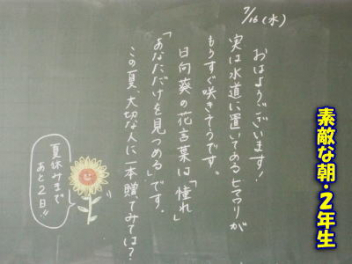 7/16(水)
おはようございます!
実は水道に置いてあるヒマワリが
もうすぐ咲きそうです。
日向葵の花言葉は「憧れ」
「あなただけを見つめる」です。
この夏、大切な人に一本贈てみては?
夏休みまで
あと2日!!
素敵な朝・2年生